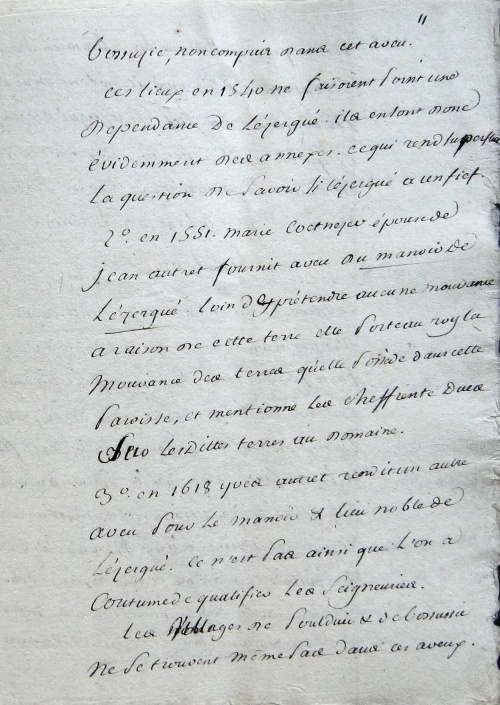 11
bossuzic, non compris dans cet aveu.
ces lieux en 1540 ne faisoient point une
dependance de Lézergué. ils en sont donc
évidemment des annexes. ce qui rend superflue
la question de savoir si Lézergué a un fief
2º. en 1551. marie Coetnezre épouse de
jean autret fournit aveu du manoir de
Lézergué. loin d'y prétendre aucune mouvance
a raison de cette terre elle porte au roy la
mouvance des terres qu'elle possede dans cette
paroisse, et mentionne les cheffrente dues
sur lesdittes terres au domaine.
3º. en 1618 yves autret rendit un autre
aveu pour le manoir & lieu noble de
Lézergué. ce n'est pas ainsi que l'on a
coutume de qualifier les seigneuries.
les villages de Poulduic & de bossuzic
ne se trouvent même pas dans ces aveux.